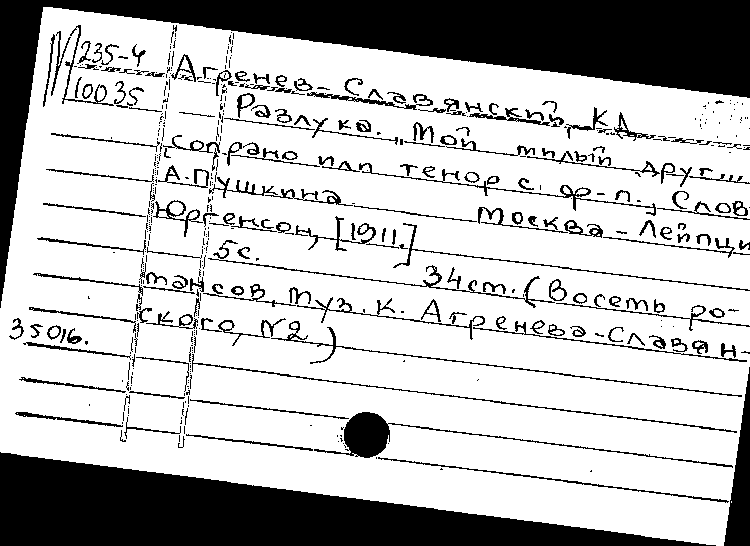 М 235-4
10035
Агренев-Славянский, К.А.
Разлука. „Мой милый друг...
[сопрано или тенор с. ф-п., Слов
А.Пушкина. Москва - Лейпци
Юргенсон, [1911.]
5с. 34ст. (Восемь ро-
мансов, муз. К. Агренева-Славян-
ского, №2)
35016.